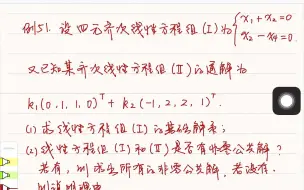 例51. 设四元齐次线性方程组(I)为{x₁+x₂=0
x₂-x₄=0.
又已知某齐次线性方程组(II)的通解为
k₁(0,1,1,0)ᵀ+k₂(-1,2,2,1)ᵀ.
(1) 求线性方程组(I)的基础解系;
(2) 线性方程组(I)和(II)是否有非零公共解?
若有, 则求出所有的非零公共解, 若没有.
则说明理由